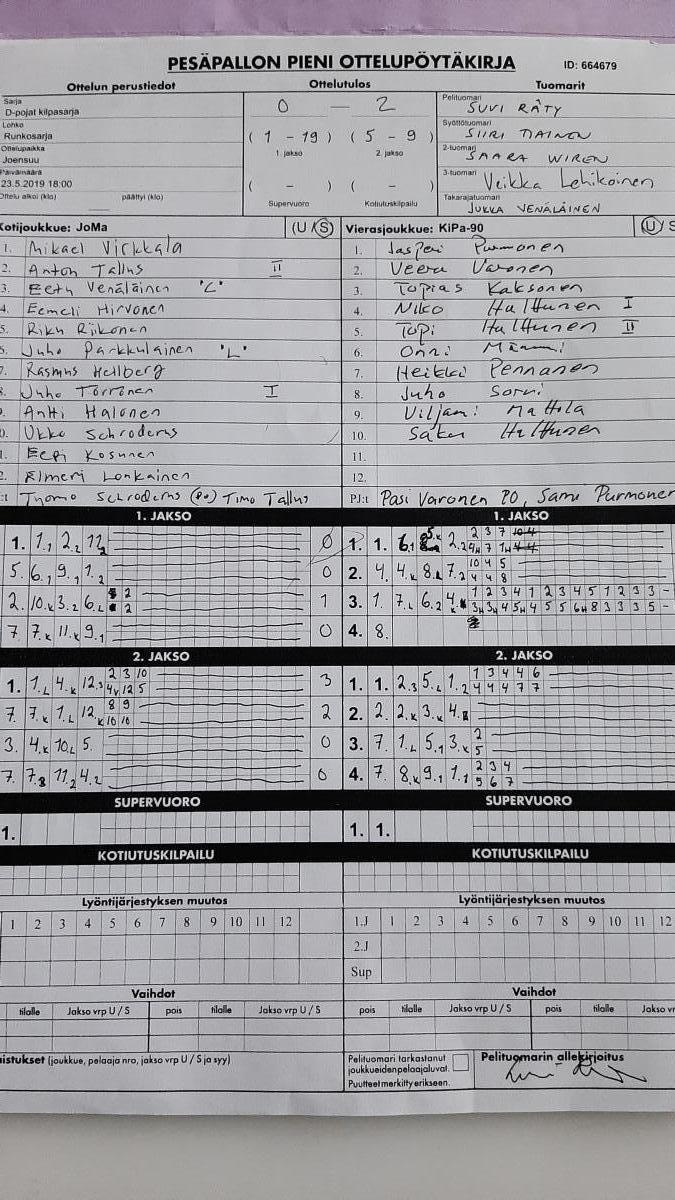 PESÄPALLON PIENI OTTELUPÖYTÄKIRJA
ID: 664679
Ottelun perustiedot Ottelutulos Tuomarit
Sarja
D-pojat kilpasarja
Lohko
Runkosarja
Ottelupaikka
Joensuu
Päivämäärä
23.5.2019 18:00
Ottelu alkoi (klo) päättyi (klo)
0 – 2
( 1 – 19 ) ( 5 – 9 )
1. jakso 2. jakso
( – ) ( – )
Supervuoro Kotiutuskilpailu
Pelituomari SUVI RÄTY
Syöttötuomari SIIRI TIAINEN
2-tuomari SAARA WIREN
3-tuomari Veikka Lehikoinen
Takarajatuomari JUKKA VENÄLÄINEN
Kotijoukkue: JoMa (U/S)
1. Mikael Virkkala
2. Anton Tallus II
3. Eetu Venäläinen "L"
4. Eemeli Hirvonen
5. Riku Riikonen
6. Juho Parkkulainen "L"
7. Rasmus Hellberg
8. Juho Törrönen I
9. Antti Halonen
10. Ukko Schroderus
11. Eepi Kosunen
12. Elmeri Lonkainen
PJ:t Tuomo Schroderus (PO) Timo Tallus
Vierasjoukkue: KiPa-90 (U/S
1. Jasperi Purmonen
2. Veeru Varonen
3. Topias Kaksonen
4. Niko Halttunen I
5. Topi Halttunen II
6. Onni
7. Heikki Pennanen
8. Juho Sorvi
9. Viljami Mattila
10. Saku Halttunen
11.
12.
PJ:t Pasi Varonen PO, Samu Purmonen
1. JAKSO
1. 1.₁ 2.₂ 11₂ 0
5. 6.₁ 9.₁ 1.₂ 0
2. 10.K 3.₂ 6.L 2 2 1
7. 7.K 11.K 9.₁ 0
1. JAKSO
1. 1. 6.₁ 2.₂ 2 3 7
4H 7 1H
2. 4. 4.K 8.L 7.₂ 10 4 5
4 4 8
3. 1. 7.L 6.₂ 4. 1 2 3 4 1 2 3 4 5 1 2 3 3 –
3H 3H 4 5H 4 5 5 6H 8 3 3 3 5 –
4. 8.
2. JAKSO
1. 1.L 4.K 12.₃ 2 3 10 3
4V 12 5
7. 7.K 1.L 12.K 8 9 2
10 10
3. 4.K 10.L 5. 0
7. 7.₈ 11.₂ 4.₂ 0
2. JAKSO
1. 1. 2.₃ 5.L 1.₂ 1 3 4 4 6
4 4 4 7 7
2. 2. 2.K 3.K 4.
3. 7 1.L 5.₁ 3.K 2
5
4. 7. 8.K 9.₁ 1.₁ 2 3 4
5 6 7
SUPERVUORO SUPERVUORO
1. 1. 1.
KOTIUTUSKILPAILU KOTIUTUSKILPAILU
Lyöntijärjestyksen muutos Lyöntijärjestyksen muutos
1 2 3 4 5 6 7 8 9 10 11 12
1.J 1 2 3 4 5 6 7 8 9 10 11 12
2.J
Sup
Vaihdot Vaihdot
tilalle Jakso vrp U / S pois tilalle Jakso vrp U / S
pois tilalle Jakso vrp U / S pois tilalle Jakso vr
istukset (joukkue, pelaaja nro, jakso vrp U / S ja syy)
Pelituomari tarkastanut
joukkueiden pelaajaluvat.
Puutteet merkitty erikseen.
Pelituomarin allekirjoitus